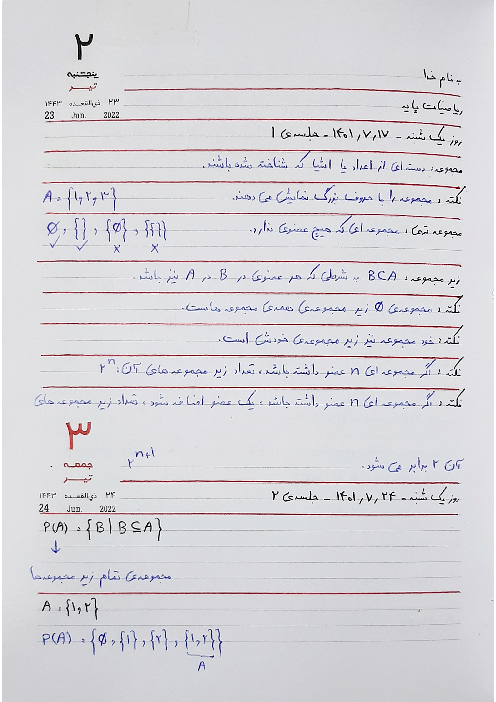 ۲
پنجشنبه
تیر
۱۴۴۳ ذی‌القعده ۲۳
23 Jun. 2022
به نام خدا
ریاضیات پایه
روز یک شنبه - ۱۴۰۱,۷,۱۷ - جلسه‌ی ۱
مجموعه: دسته ای از اعداد یا اشیا که شناخته شده باشند.
نکته: مجموعه را با حروف بزرگ نمایش می دهند. A = {۱,۲,۳}
مجموعه تهی: مجموعه ای که هیچ عضوی ندارد. ∅, { }, {∅}, {{ }}
✓ ✓ × ×
زیر مجموعه: B⊂A به شرطی که هر عضوی در B در A نیز باشد.
نکته: مجموعه‌ی ∅ زیر مجموعه‌ی همه‌ی مجموعه هاست.
نکته: خود مجموعه نیز زیر مجموعه‌ی خودش است.
نکته: اگر مجموعه ای n عضو داشته باشد، تعداد زیر مجموعه های آن: ۲ⁿ
نکته: اگر مجموعه ای n عضو داشته باشد، یک عضو اضافه شود، تعداد زیر مجموعه های
آن ۲ برابر می شود. ۲ⁿ⁺¹
۳
جمعه
تیر
۱۴۴۳ ذی‌القعده ۲۴
24 Jun. 2022
روز یک شنبه - ۱۴۰۱,۷,۲۴ - جلسه‌ی ۲
P(A) = {B | B⊆A}
↓
مجموعه‌ی تمام زیر مجموعه‌ها
A = {۱,۲}
P(A) = {∅, {۱}, {۲}, {۱,۲}}
A